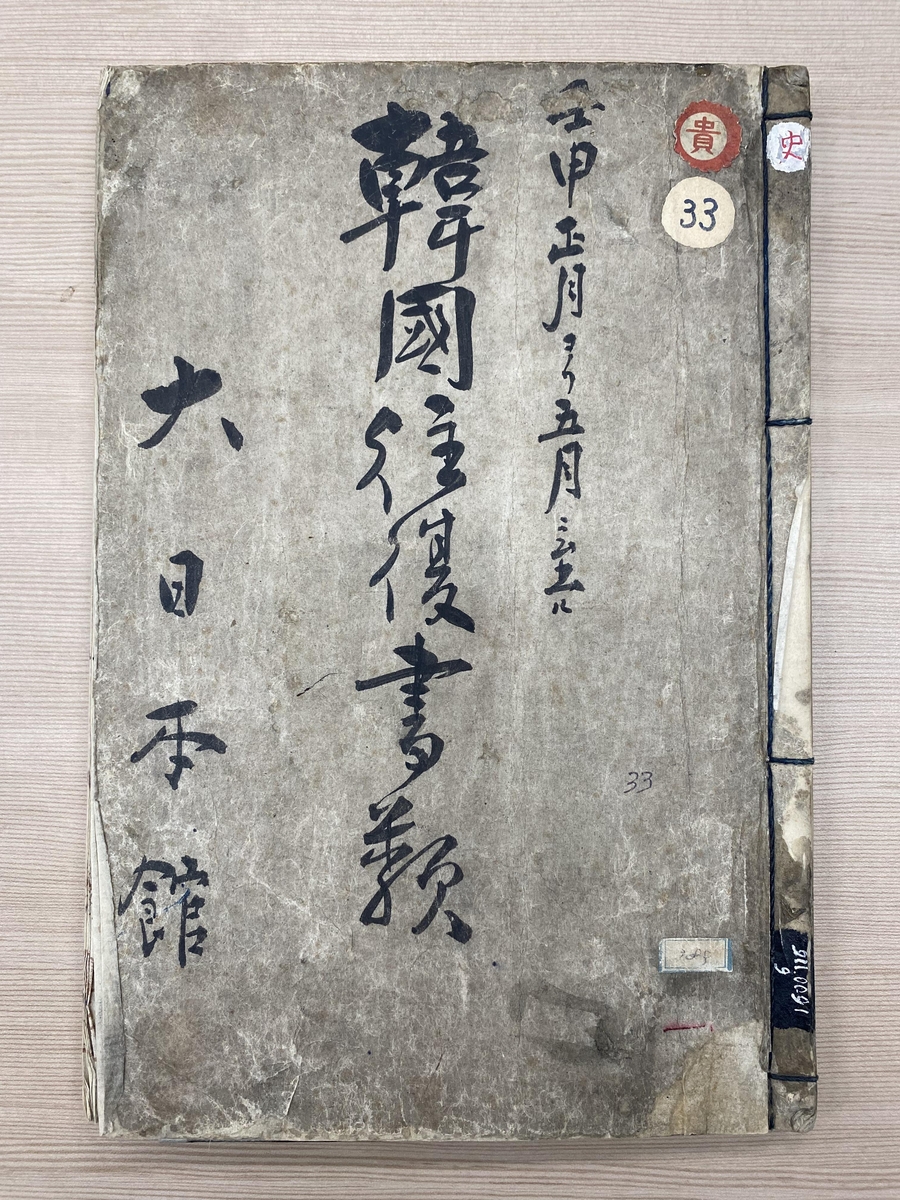 史
貴
33
壬申正月ヨリ五月ニ至ル
33
韓國往復書類
大日本館